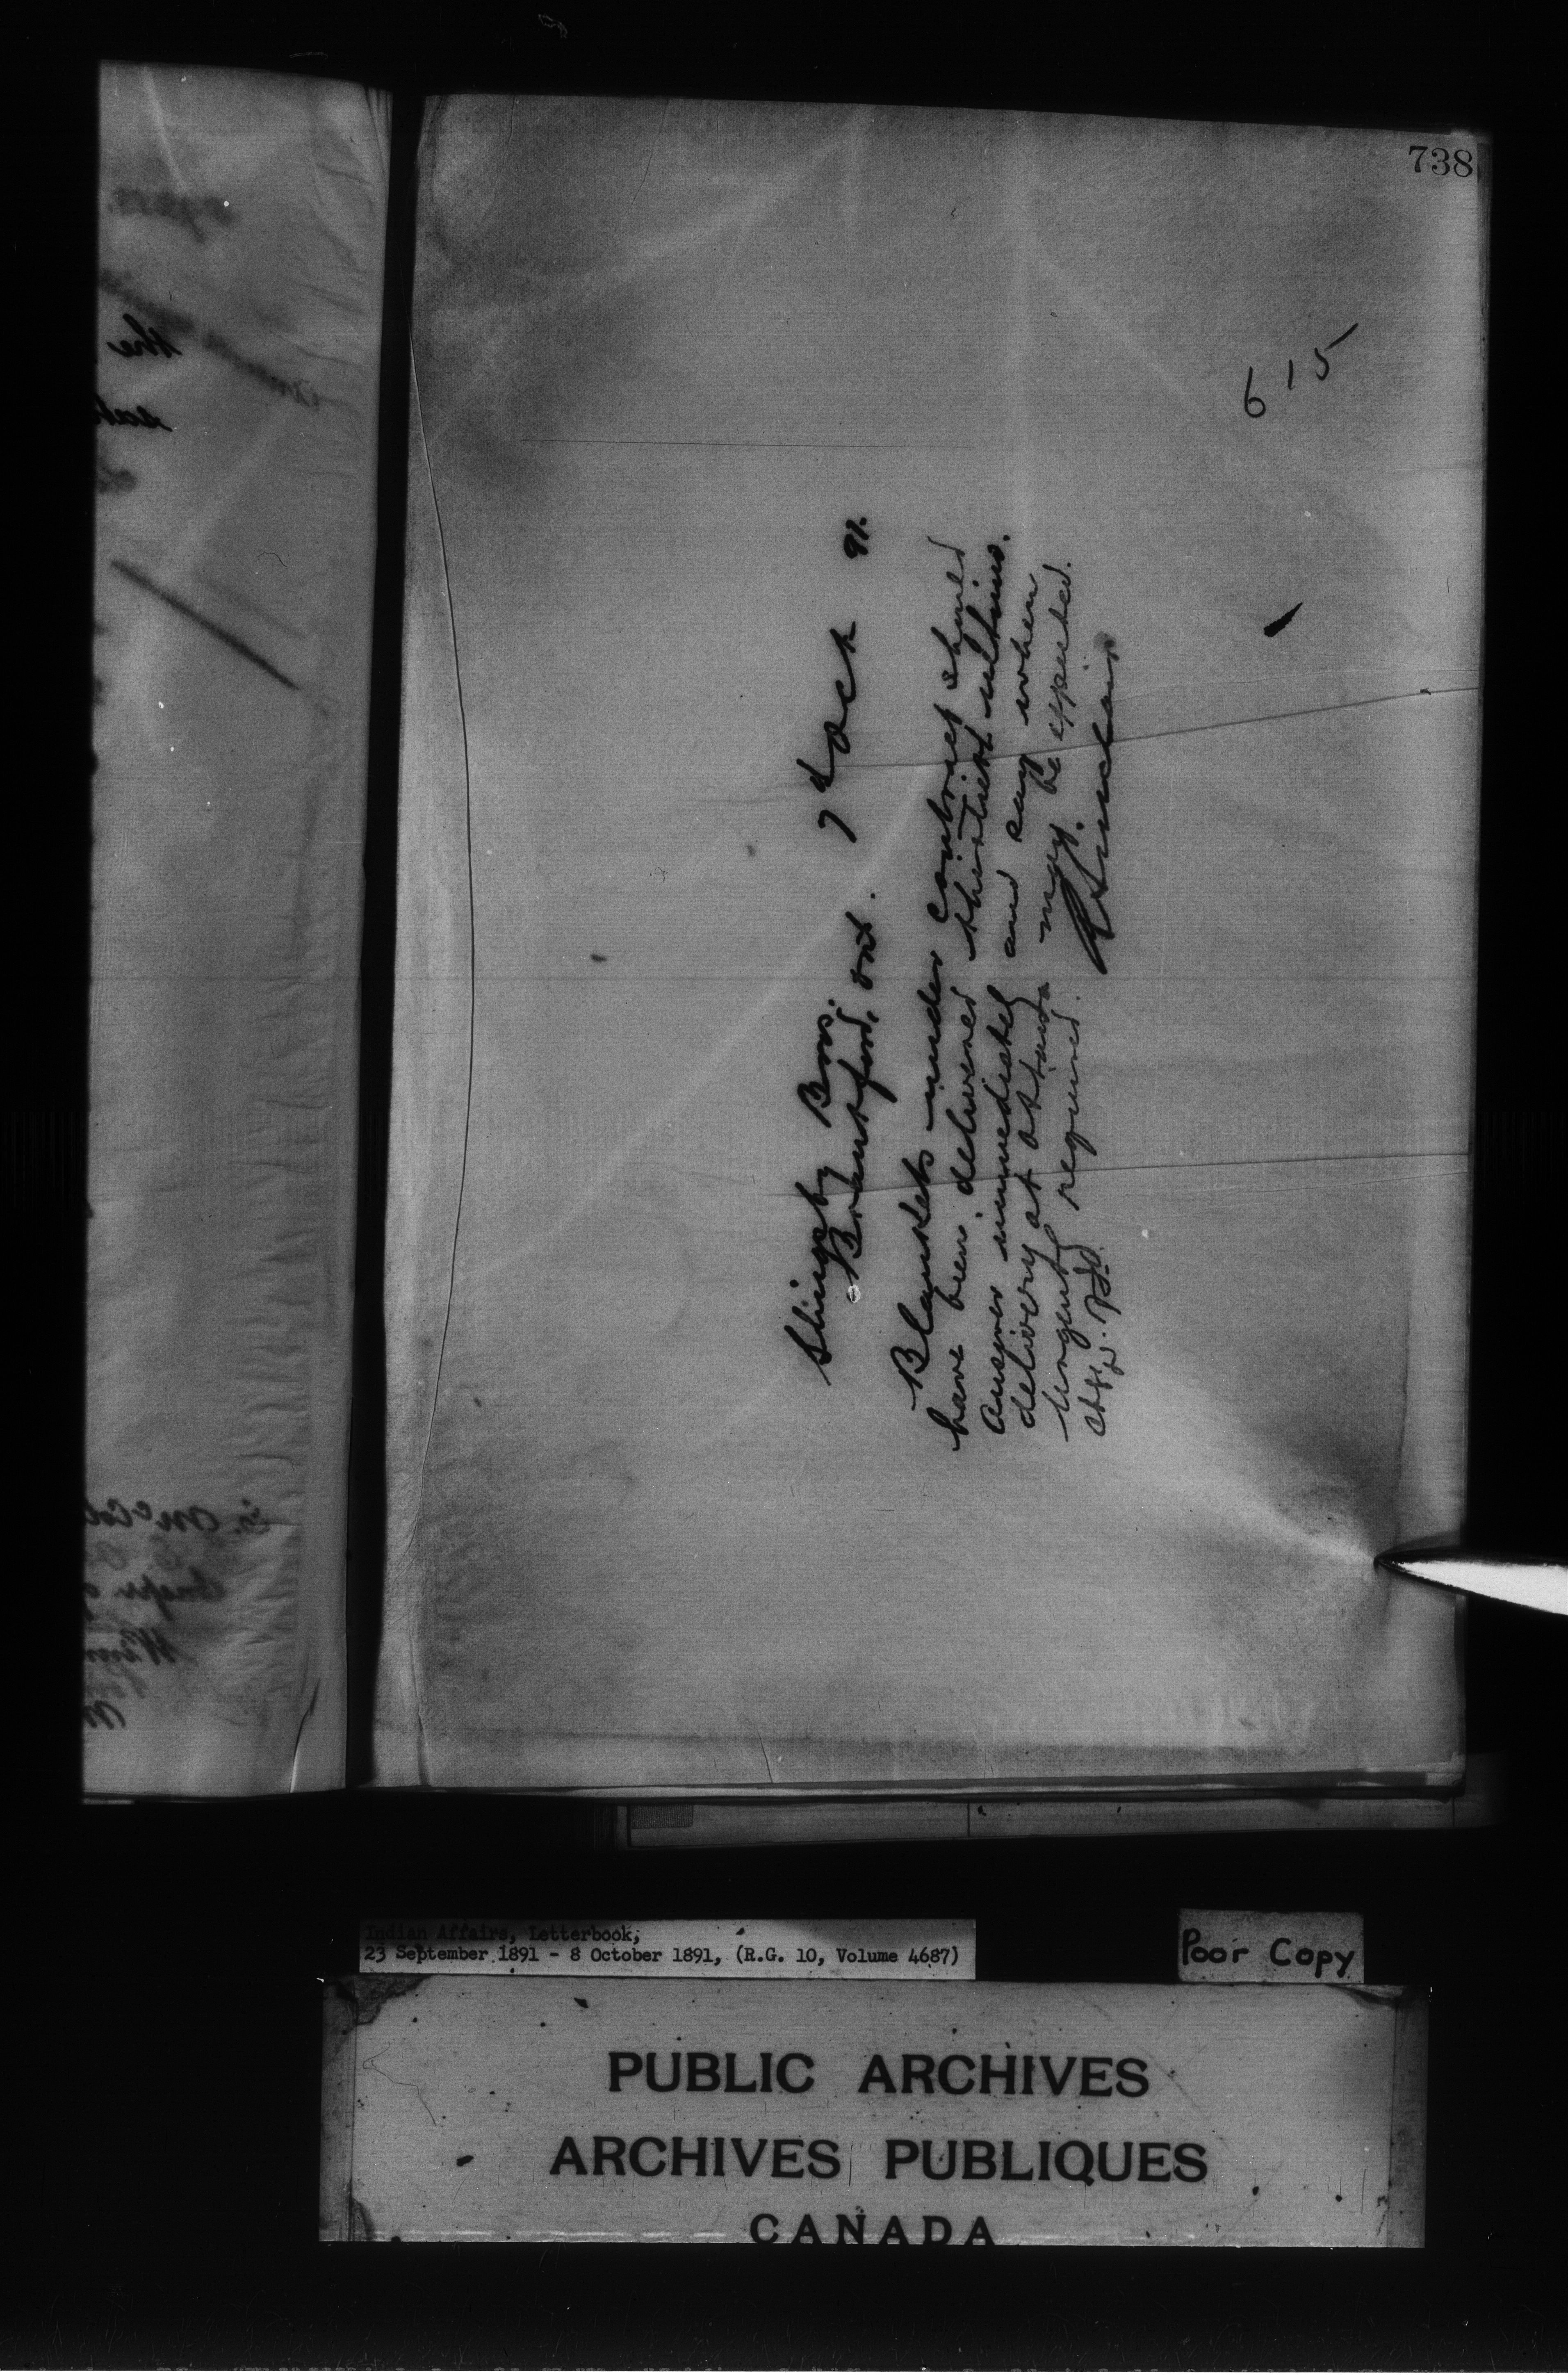 738
615
7th Oct 91.
Slingsby Bros.
Brantford, Ont.
Blankets under contract should
have been delivered thirtieth ultimo.
Answer immediately and say when
delivery at Ottawa may be expected.
Urgently required.
R Sinclair
the
Indian Affairs, Letterbook,
23 September 1891 - 8 October 1891, (R.G. 10, Volume 4687)
Poor Copy
PUBLIC ARCHIVES
ARCHIVES PUBLIQUES
CANADA